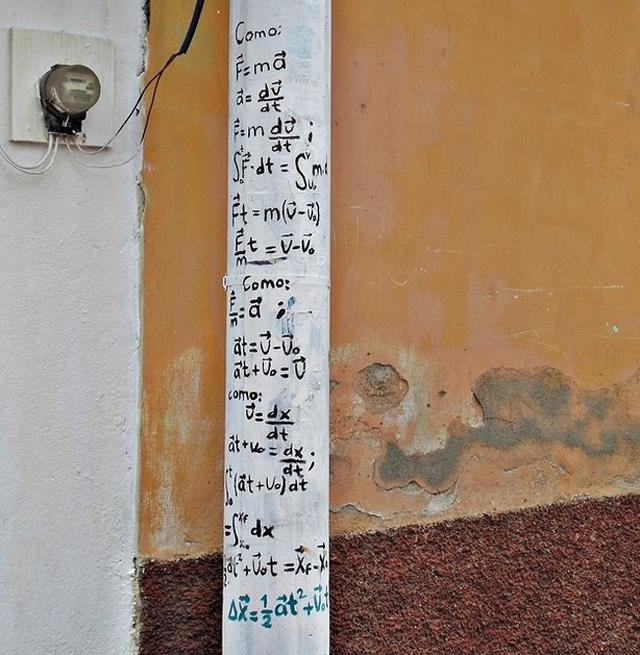 Como:
F⃗=ma⃗
a⃗=dv⃗/dt
F⃗=m dv⃗/dt;
∫₀ᵗF⃗·dt = ∫ᵥ₀ᵛ m.d
F⃗t=m(v⃗-v⃗₀)
F⃗/m t = v⃗-v⃗₀
Como:
F⃗/m=a⃗;
a⃗t=v⃗-v⃗₀
a⃗t+v⃗₀=v⃗
como:
v⃗=dx/dt
a⃗t+v₀=dx/dt;
∫₀ᵗ(a⃗t+v₀)dt
=∫ₓ₀ˣᶠ dx
½a⃗t²+v⃗₀t=x⃗f-x⃗₀
Δx⃗=½a⃗t²+v⃗₀t